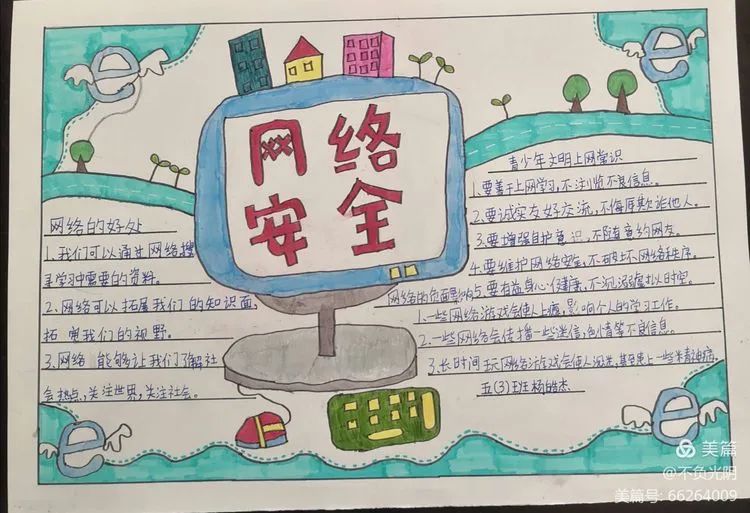 网络
安全
网络的好处
1、我们可以通过网络搜
寻学习中需要的资料。
2、网络可以拓展我们的知识面,
拓宽我们的视野。
3、网络能够让我们了解社
会热点、关注世界,关注社会。
青少年文明上网常识
1.要善于上网学习,不浏览不良信息。
2.要诚实友好交流,不侮辱欺诈他人。
3.要增强自护意识,不随意约网友。
4.要维护网络安全,不破坏网络秩序。
5.要有益身心健康,不沉溺虚拟时空。
网络的负面影响
1.一些网络游戏会使人上瘾,影响个人的学习工作。
2.一些网络会传播一些迷信,色情等不良信息。
3.长时间玩网络游戏会使人沉迷,甚至患上一些精神病。
五(3)班杨皓杰
e
e
e
e
美篇
@不负光阴
美篇号:66264009